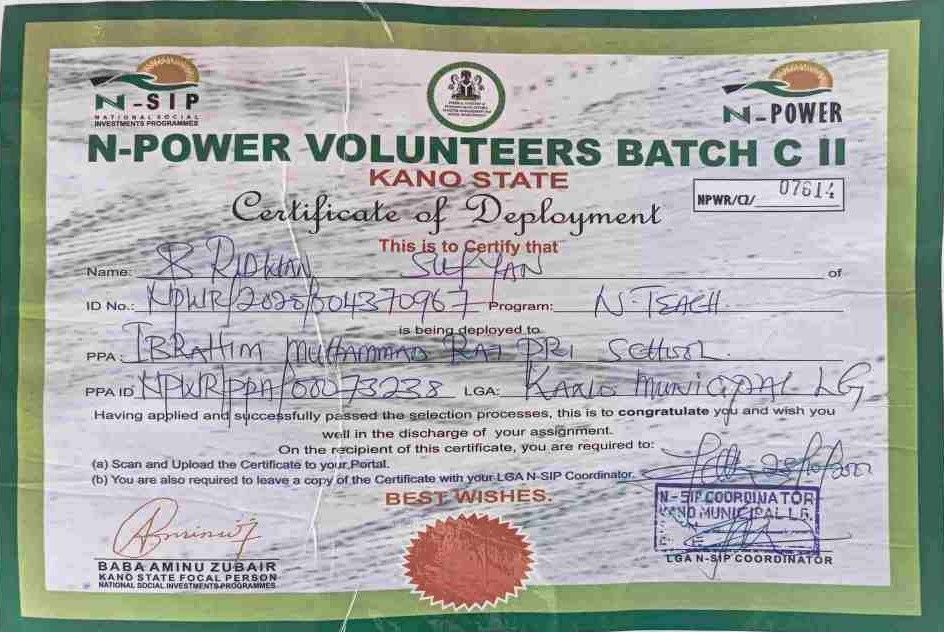 N-SIP
NATIONAL SOCIAL
INVESTMENTS PROGRAMMES
N-POWER
N-POWER VOLUNTEERS BATCH C II
KANO STATE
NPWR/C2/ 07614
Certificate of Deployment
This is to Certify that
Name: RIDWAN SUFYAN of
ID No.: NPWR/2020/004370967 Program: N-TEACH
is being deployed to
PPA: IBRAHIM MUHAMMAD PRI SCHOOL
PPA ID NPWR/PPA/00073238 LGA: KANO MUNICIPAL LG
Having applied and successfully passed the selection processes, this is to congratulate you and wish you
well in the discharge of your assignment.
On the recipient of this certificate, you are required to:
(a) Scan and Upload the Certificate to your Portal.
(b) You are also required to leave a copy of the Certificate with your LGA N-SIP Coordinator.
BEST WISHES.
N-SIP COORDINATOR
KANO MUNICIPAL L.G.
BABA AMINU ZUBAIR
KANO STATE FOCAL PERSON
NATIONAL SOCIAL INVESTMENTS-PROGRAMMES
LGA N-SIP COORDINATOR